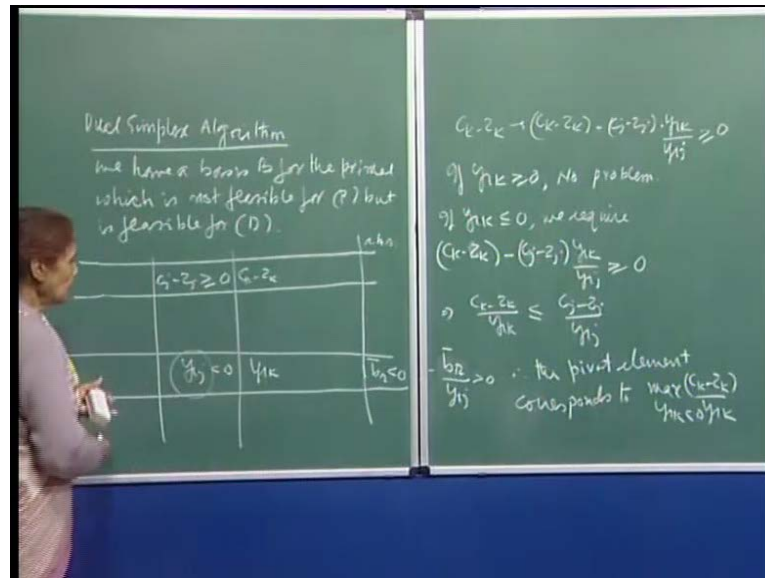 Dual Simplex Algorithm
we have a basis B for the primal
which is not feasible for (P) but
is feasible for (D).
r.h.s.
cj-zj ≥ 0 ck-zk
yrj < 0 yrk b̄r < 0
ck-zk → (ck-zk) - (cj-zj) · yrk/yrj ≥ 0
If yrk ≥ 0, No problem.
If yrk ≤ 0, we require
(ck-zk) - (cj-zj) yrk/yrj ≥ 0
⇒ ck-zk/yrk ≤ cj-zj/yrj
b̄r/yrj > 0 ∴ the pivot element
corresponds to max (ck-zk)/yrk
yrk<0